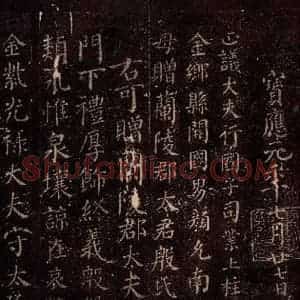 寶應元年七月廿七日
正議大夫行國子司業上柱
金鄉縣開國男顏允南
母贈蘭陵縣太君殷氏
右可贈蘭陵郡太夫
門下禮厚飾終義
類孔惟泉壤諒在哀
金紫光祿大夫守太